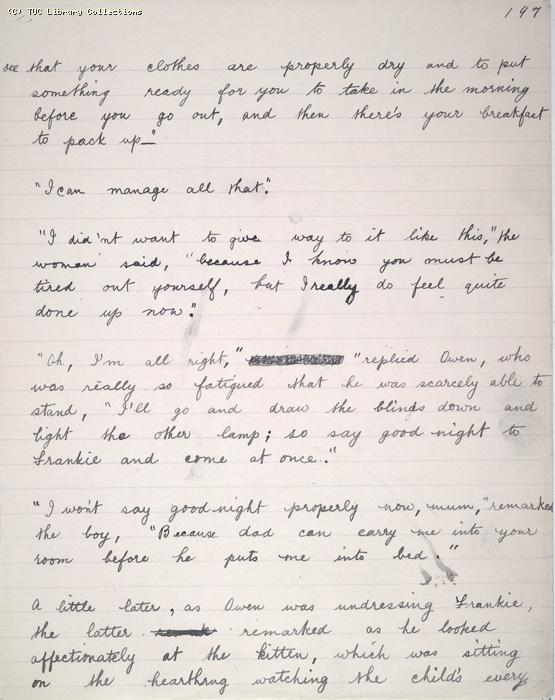 (C) TUC Library Collections
197
see that your clothes are properly dry and to put
something ready for you to take in the morning
before you go out, and then there's your breakfast
to pack up—"
"I can manage all that."
"I did'nt want to give way to it like this," the
woman said, "because I know you must be
tired out yourself, but I really do feel quite
done up now."
"Oh, I'm all right," "replied Owen, who
was really so fatigued that he was scarcely able to
stand, "I'll go and draw the blinds down and
light the other lamp; so say good night to
Frankie and come at once."
"I won't say good night properly now, mum," remarked
the boy, "Because dad can carry me into your
room before he puts me into bed."
A little later, as Owen was undressing Frankie,
the latter remarked as he looked
affectionately at the kitten, which was sitting
on the hearthrug watching the child's every